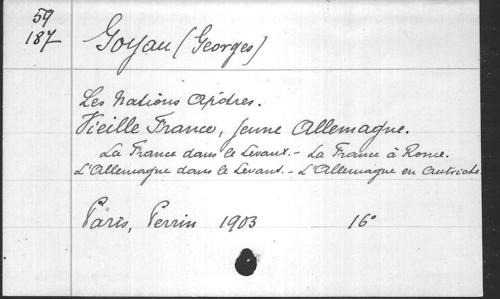 59
187
Goyau (Georges)
Les Nations Apôtres.
Vieille France, Jeune Allemagne.
La France dans le Levant. - La France à Rome.
L'Allemagne dans le Levant. - L'Allemagne en Autriche.
Paris, Perrin 1903 16°